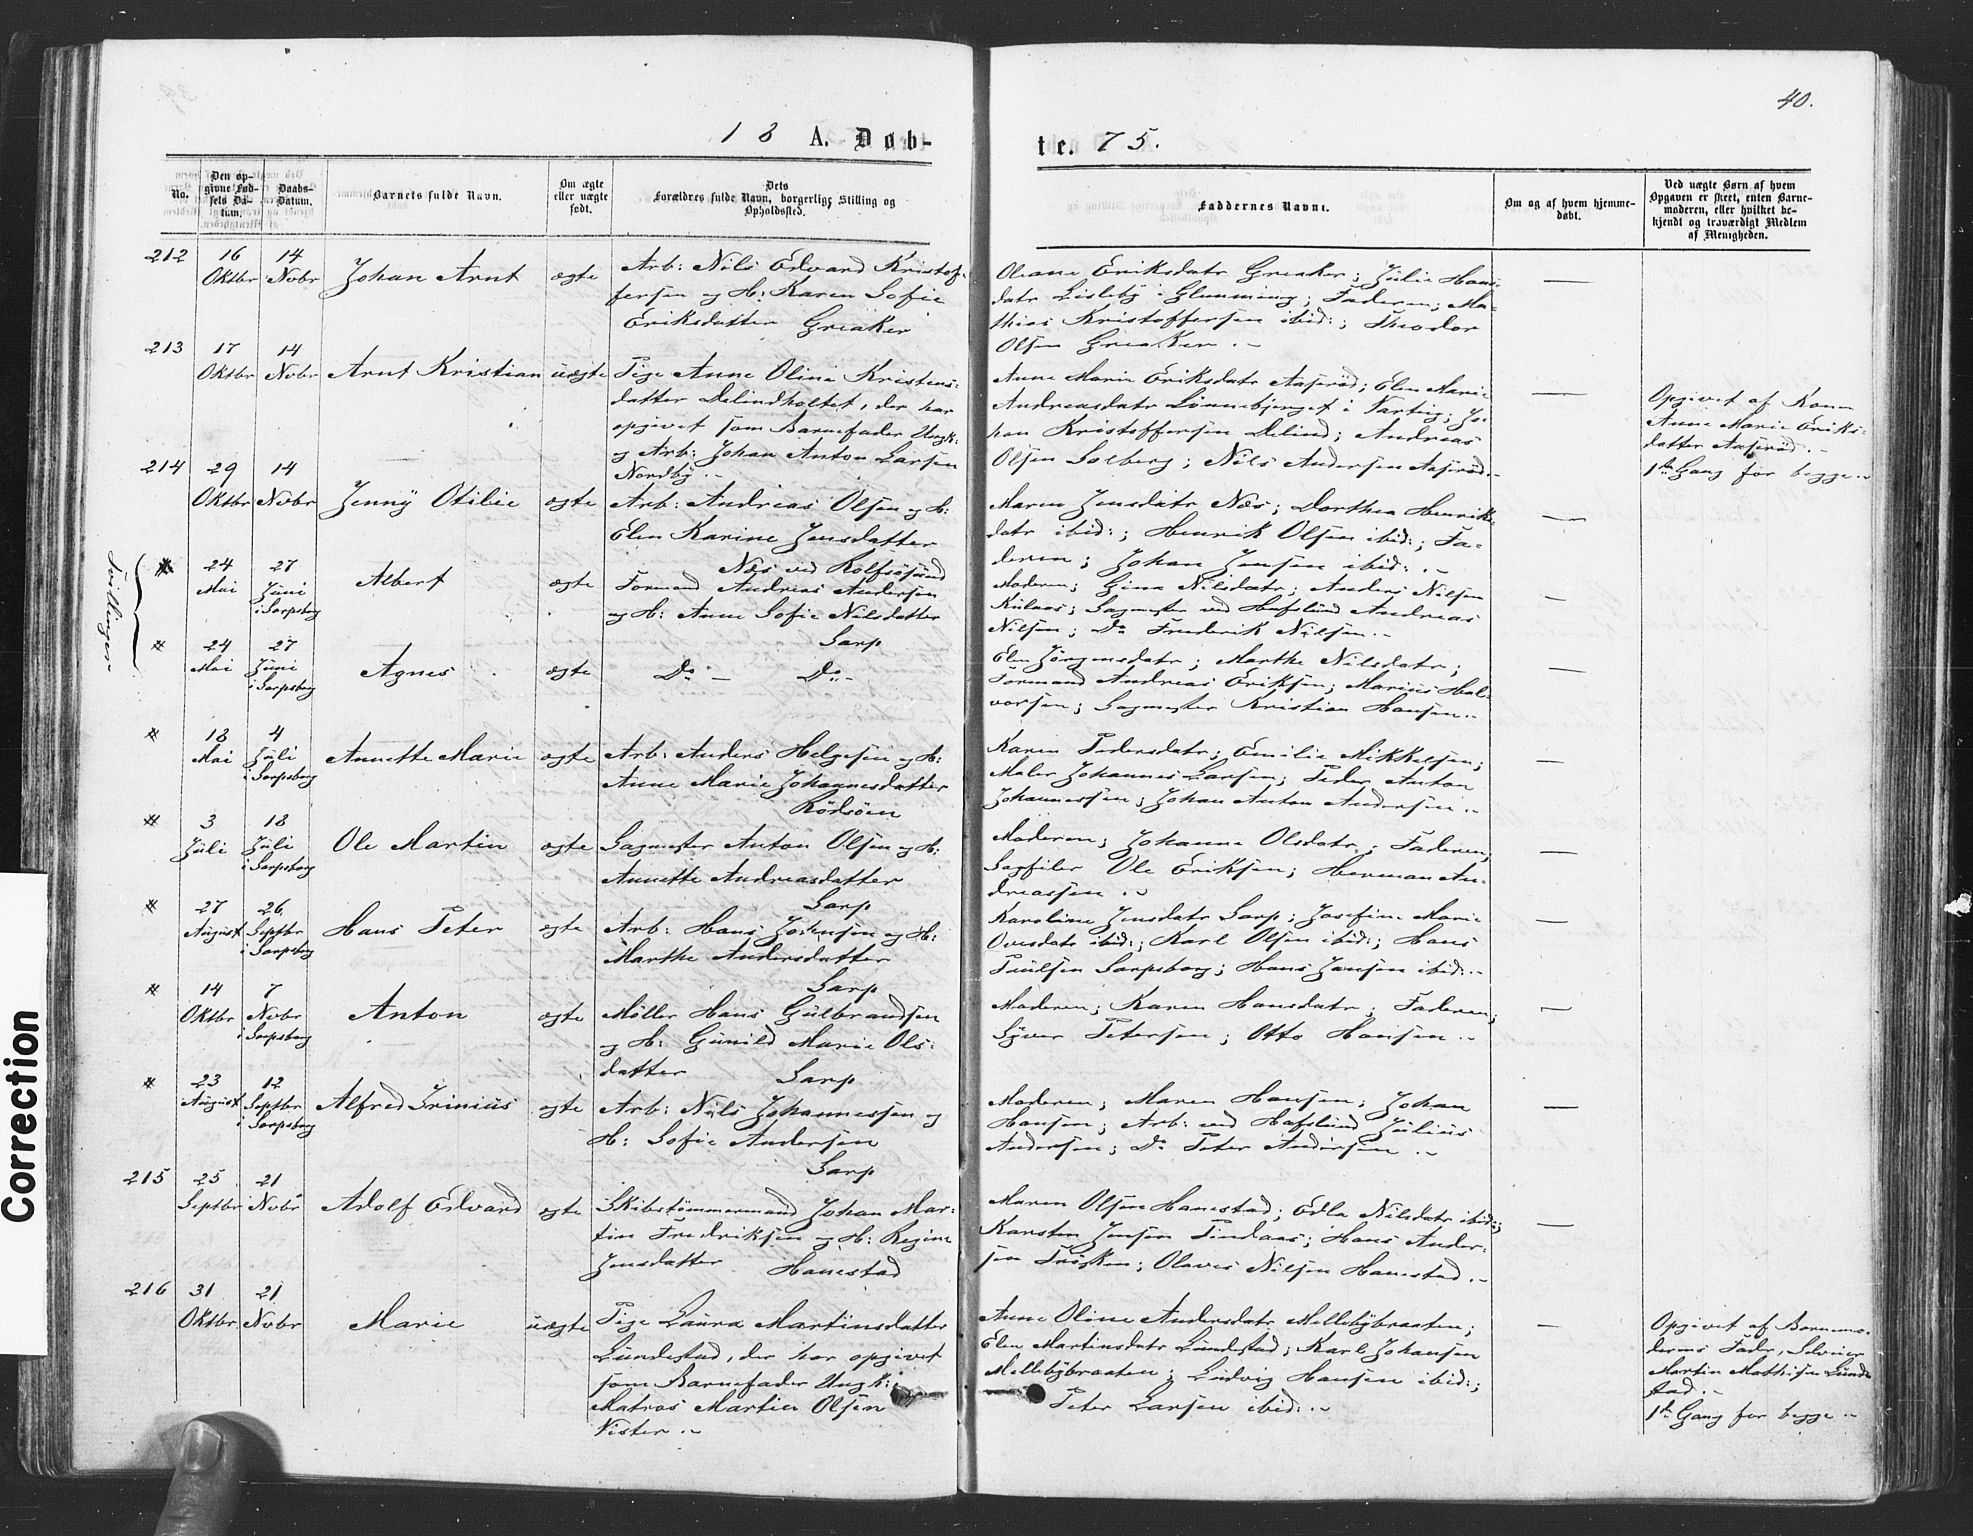 40.
18 A. Døb-
te. 75.
No.
Den op-
givne Fød-
sels Da-
tum.
Daabs-
Datum.
Barnets fulde Navn.
Om ægte
eller uægte
født.
Dets
Forældres fulde Navn, borgerlige Stilling og
Opholdssted.
Faddernes Navne.
Om og af hvem hjemme-
døbt.
Ved uægte Børn af hvem
Opgaven er skeet, enten Barne-
moderen, eller hvilket be-
kjendt og troværdigt Medlem
af Menigheden.
212 16 Oktbr 14 Nvbr Johan Arnt ægte
Arb: Nils Edvard Kristof-
fersen og H: Karen Sofie
Eriksdatter Greaker
Oleane Eriksdatr Greaker; Julie Hans-
datr Lisleby i Glemming; Faderen; Ma-
thias Kristoffersen ibid:; Theodor
Olsen Greaker.-
—
213 17 Oktbr 14 Nvbr Arnt Kristian uægte
Pige Anne Oline Kristens-
datter Delindholtet, der har
opgivet som Barnefader Ungk:
og Arb: Johan Anton Larsen
Nordby.-
Anne Marie Eriksdatr Aaserød; Elen Marie
Andreasdatr Lønnebjerget i Varteig; Jo-
han Kristoffersen Delind; Andreas
Olsen Solberg; Nils Andersen Aaserød.-
—
Opgivet af Konen
Anne Marie Eriks-
datter Aaserød.-
1ste Gang for begge.-
214 29 Oktbr 14 Nvbr Jenny Otilie ægte
Arb: Andreas Olsen og H:
Elen Karine Jensdatter
Næs ved Rolfsøsund
Maren Jensdatr Næs; Dorthea Henriks-
datr ibid:; Henrik Olsen ibid:; Fa-
deren; Johan Jensen ibid:.-
—
Tvillinger-
* 24 Mai 27 Juni i Sarpsborg Albert ægte
Formand Andreas Andersen
og H: Anne Sofie Nilsdatter
Sarp
Moderen; Gina Nilsdatr; Anders Nilsen
Kulaas; Sagmester ved Hafslund Andreas
Nilsen; Do Frederik Nilsen.-
—
* 24 Mai 27 Juni i Sarpsborg Agnes ægte
Do - Do -
Elen Jørgensdatr; Marthe Nilsdatr;
Formand Andreas Eriksen; Marius Hal-
vorsen; Sagmester Kristian Hansen.-
—
* 18 Mai 4 Juli i Sarpsborg Annette Marie ægte
Arb: Anders Helgesen og H:
Anne Marie Johannesdatter
Rødsøen
Karen Pedersdatr; Emilie Mikkelsen;
Maler Johannes Larsen; Peder Anton
Johannessen; Johan Anton Andersen.-
—
* 3 Juli 18 Juli i Sarpsborg Ole Martin ægte
Sagmester Anton Olsen og H:
Annette Andreasdatter
Sarp
Moderen; Johanne Olsdatr; Faderen;
Sagfiler Ole Eriksen; Herman An-
dreassen.-
—
* 27 August 26 Septbr i Sarpsborg Hans Peter ægte
Arb: Hans Johansen og H:
Marthe Andersdatter
Sarp
Karoline Jensdatr Sarp; Josefine Marie
Ovesdatr ibid:; Karl Olsen ibid:; Hans
Paulsen Sarpsborg; Hans Jansen ibid:.-
—
* 14 Oktbr 7 Nvbr i Sarpsborg Anton ægte
Møller Hans Gulbrandsen
og H: Gunild Marie Ols-
datter Sarp
Moderen; Karen Hansdatr; Faderen;
Syver Petersen; Otto Hansen.-
—
* 23 August 12 Septbr i Sarpsborg Alfred Irinius ægte
Arb: Nils Johannessen og
H: Sofie Andersen
Sarp
Moderen; Maren Hansen; Johan
Hansen; Arb: ved Hafslund Julius
Andersen; Do Peter Andersen.-
—
215 25 Septbr 21 Nvbr Adolf Edvard ægte
Skibstømmermand Johan Mar-
tin Fredriksen og H: Regine
Jensdatter Hanestad
Maren Olsen Hanestad; Edla Nilsdatr ibid:;
Karsten Jensen Tindaas; Hans Ander-
sen Trøsken; Olaves Nilsen Hanestad.-
—
216 31 Oktbr 21 Nvbr Marie uægte
Pige Laura Martinsdatter
Lundestad, der har opgivet
som Barnefader Ungk:
Matros Martin Olsen
Nister.-
Anne Oline Andersdatr Mellebybraaten;
Elen Martinsdatr Lundestad; Karl Johansen
Mellebybraaten; Ludvig Hansen ibid:;
Peter Larsen ibid:.-
—
Opgivet af Barnemo-
derens Fader, Selveier
Martin Mathisen Lunde-
stad.-
1ste Gang for begge.-
Correction